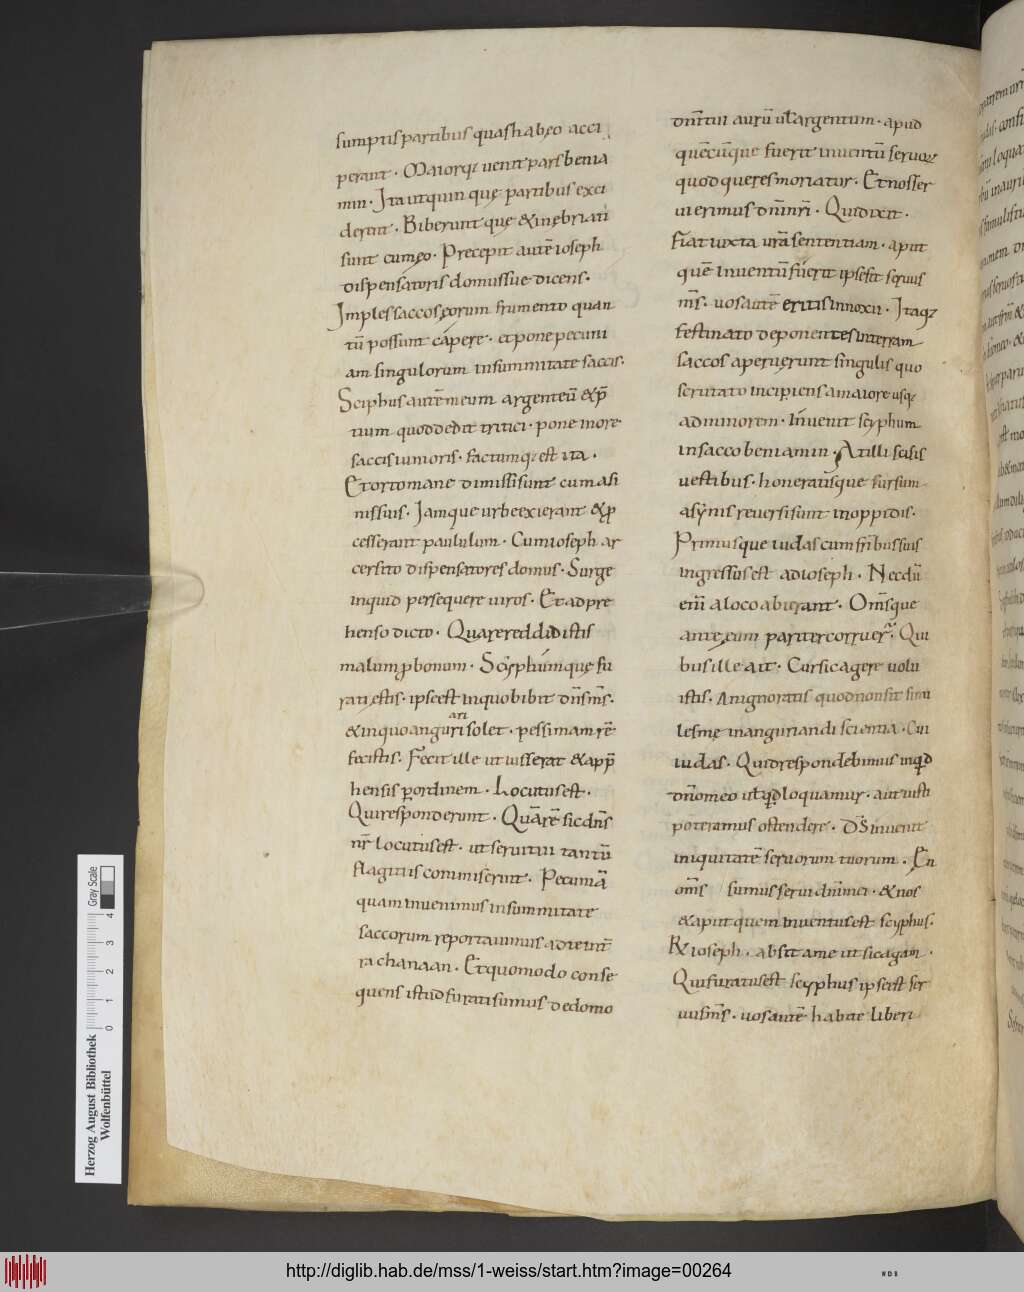 sumptis partibus quas habeo acci
perant. Maiorq; uenit pars benia
min. Ita ut quinque partibus exci
derent. Biberuntque & inębriati
sunt cum eo. Precepit autē ioseph
dispensatoris domus sue dicens.
Imple saccos eorum frumento quan
tū possunt cápere. et pone pecuni
am singulorum in summitate saccis.
Sciphus autē meum argenteū & p̄
tium quod dedit tritici. pone in ore
saccis iunioris. factumq; est ita.
Et orto mane dimissi sunt cum asi
nis suis. Iamque urbe exierant & p
cesserant paululum. Cum ioseph ar
cersito dispensatores domus. Surge
inquid persequere uiros. Et adpre
henso dicto. Quare reddidistis
malum p bonum. Scẏphúmque fu
rati estis. ipse est in quo bibit dn̄s m̄s.
& in quo anguri solet. pessimam rē
ari
fecistis. Fecit ille ut iusserat & app̄
hensis p ordinem. Locutus est.
Qui responderunt. Quārē sic dn̄s
nr̄ locutus est. ut serui tui tantū
flagitiis commiserint. Pecuniā
quam inuenimus in summitate
saccorum reportauimus ad te int̄
ra chanaan. Et quomodo conse
quens istud furati sumus de domo
dn̄i tui aurū uł argentum. apud
quēcūque fuerit inuentū seruoꝝ
quod queres moriatur. Et nos ser
ui erimus dn̄i nr̄i. Qui dixit.
Fiat iuxta urā sententiam. aput
quē inuentū fúerit ipse sit seruus
m̄s. uos autē eritis innoxii. Itaq;
festinato deponentes in terram
saccos aperuerunt singulis quo
scrutato incipiens a maiore usq;
ad minorem. Inuenit scyphum
in sacco beniamin. At illi scisis
uestibus. honeratisque sursum
asẏnis reuersi sunt in oppidis.
Primusque iudas cum fr̄ibus suis
ingressus est ad ioseph. Necdū
enī a loco abierant. Om̄sque
ante eum pariter corruer̄. Qui
bus ille ait. Cur sic agere uolu
istis. An ignoratis quod non sit simi
les me in anguriandi scientia. Cui
iudas. Quid respondebimus inqd
dn̄o meo uł qd loquamur. aut iusti
poteramus ostendere. Ds̄ inuenit
iniquitatē seruorum tuorum. En
om̄s sumus serui dn̄i mei. & nos
& aput quem inuentus est scyphus.
R& ioseph. absit a me ut sic agam.
Qui furatus est scyphus ipse est ser
uus m̄s. uos autē habite liberi
http://diglib.hab.de/mss/1-weiss/start.htm?image=00264
Herzog August Bibliothek
Wolfenbüttel
Gray Scale
0 1 2 3 4